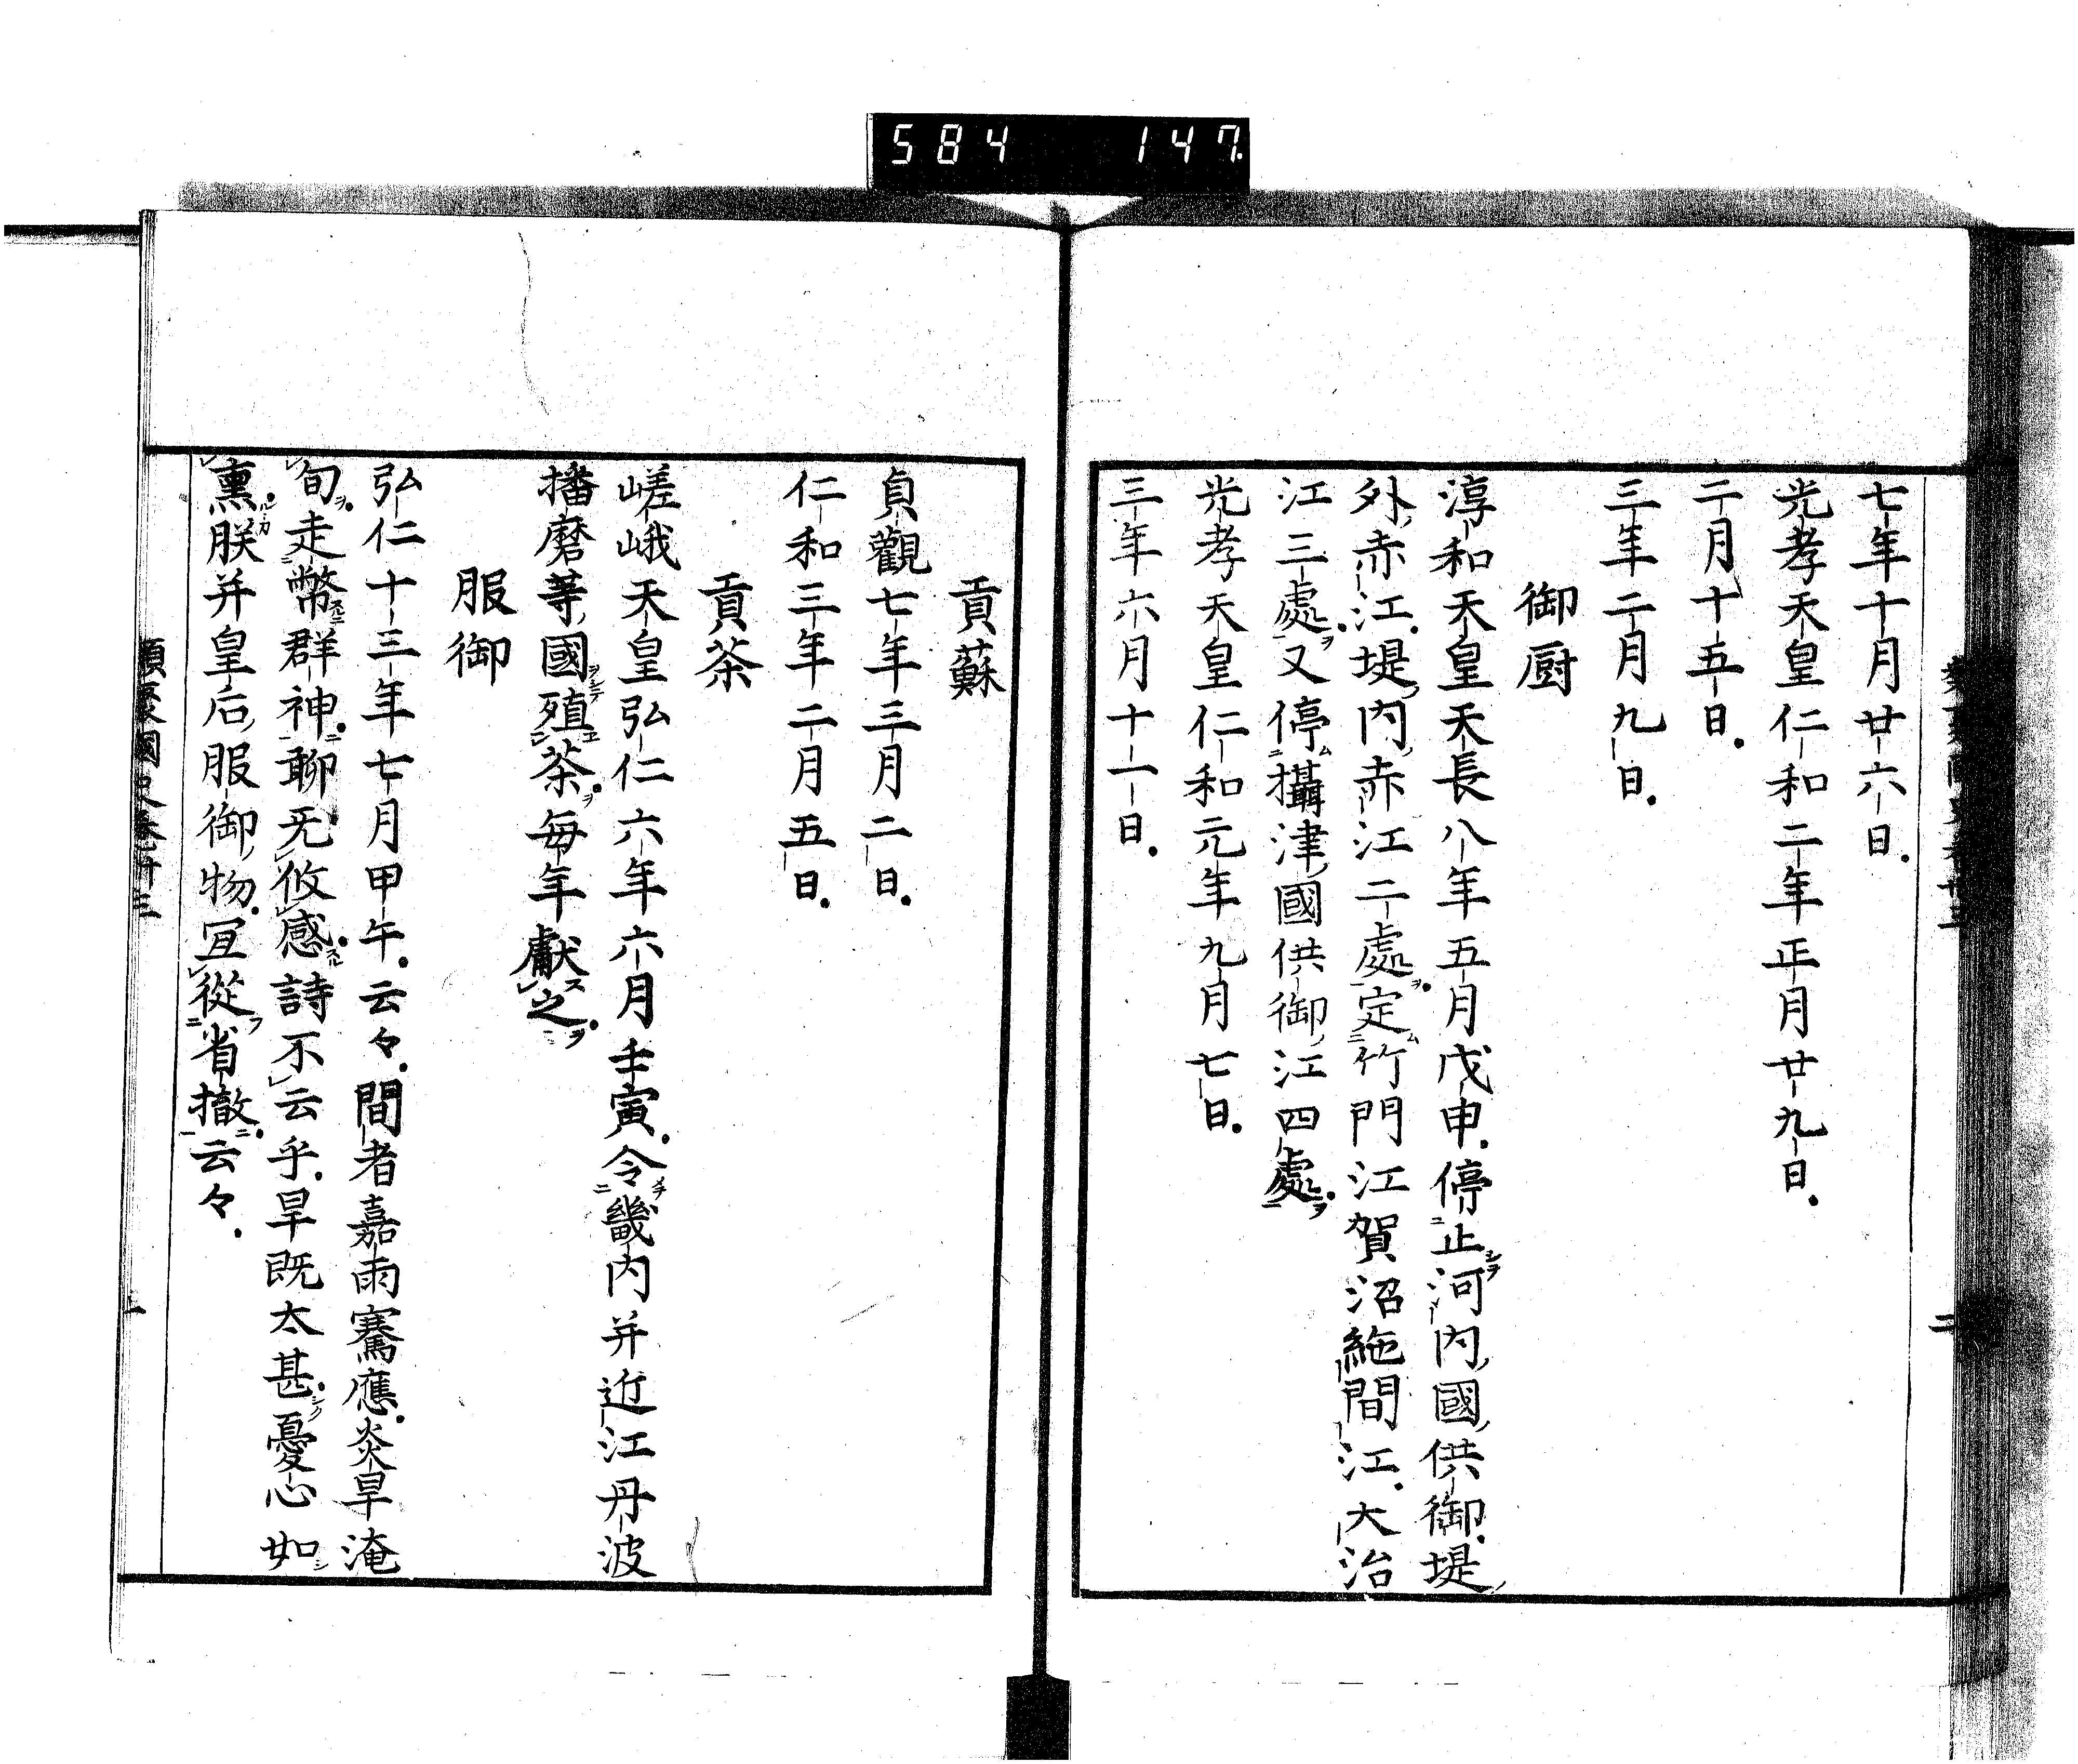 584 147
七年十月廿六日.
光孝天皇仁和二年正月廿九日.
二月十五日.
三年二月九日.
御厨
淳和天皇天長八年五月戊申.停止河内國供御.堤
外赤江.堤内赤江二處.定竹門江賀沼絁間江.大治
江三處.又停攝津國供御江四處.
光孝天皇仁和元年九月七日.
三年六月十一日.
貢蘇
貞觀七年三月二日.
仁和三年二月五日.
貢茶
嵯峨天皇弘仁六年六月壬寅.令畿内并近江丹波
播磨等國殖茶.毎年獻之.
服御
弘仁十三年七月甲午.云々.間者嘉雨騫應.炎旱淹
旬.走幣群神.聊旡攸感.詩不云乎.旱既太甚.憂心如
熏.朕并皇后服御物.冝從省撤.云々.
類聚國史卷廿三